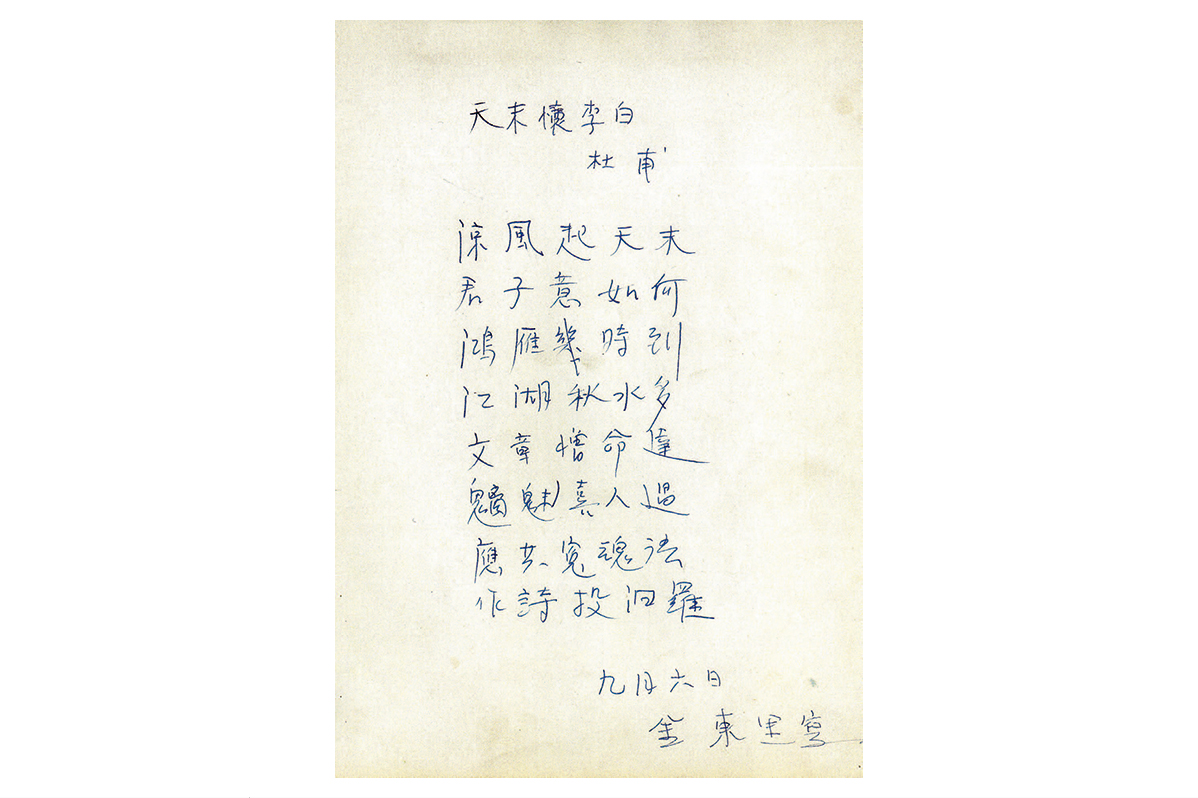 天末懷李白
杜甫
涼風起天末
君子意如何
鴻雁幾時到
江湖秋水多
文章憎命達
魑魅喜人過
應共冤魂
作詩投汨羅
九月六日
金東里寫